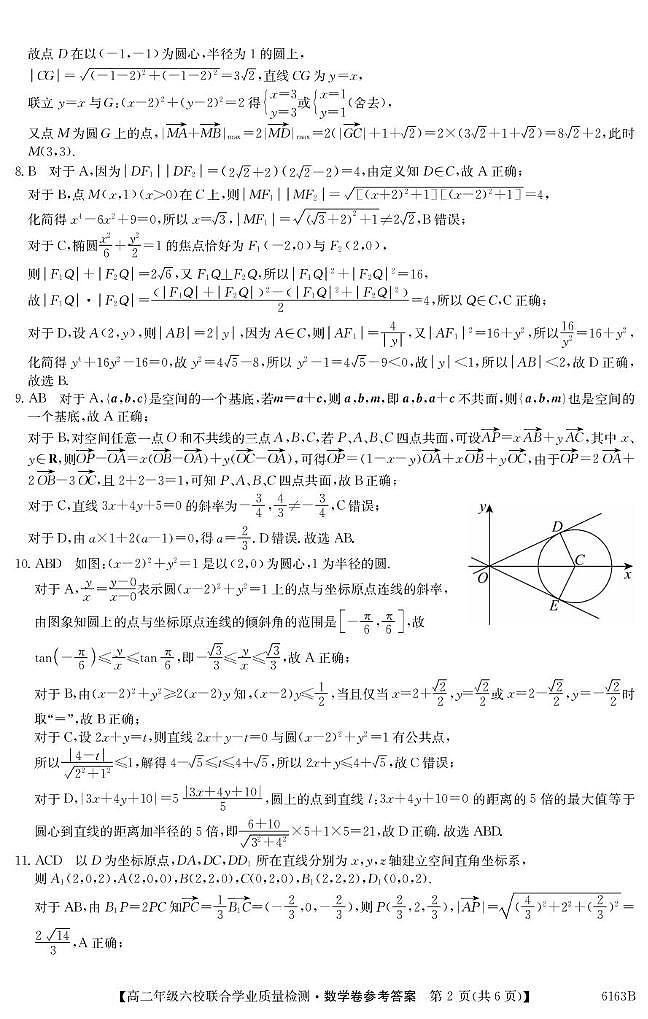 故点 D 在以(-1,-1)为圆心,半径为 1 的圆上,
|CG|=√((-1-2)²+(-1-2)²)=3√2,直线 CG 为 y=x,
联立 y=x 与 G:(x-2)²+(y-2)²=2 得{x=3 y=3 或{x=1 y=1(舍去),
又点 M 为圆 G 上的点,|MA→+MB→|max=2|MD→|max=2(|GC→|+1+√2)=2×(3√2+1+√2)=8√2+2,此时
M(3,3).
8. B 对于 A,因为|DF₁||DF₂|=(2√2+2)(2√2-2)=4,由定义知 D∈C,故 A 正确;
对于 B,点 M(x,1)(x>0)在 C 上,则|MF₁||MF₂|=√([(x+2)²+1][(x-2)²+1])=4,
化简得 x⁴-6x²+9=0,所以 x=√3,|MF₁|=√((√3+2)²+1)≠2√2,B 错误;
对于 C,椭圆x²/6+y²/2=1 的焦点恰好为 F₁(-2,0)与 F₂(2,0),
则|F₁Q|+|F₂Q|=2√6,又 F₁Q⊥F₂Q,所以|F₁Q|²+|F₂Q|²=16,
故|F₁Q|·|F₂Q|=((|F₁Q|+|F₂Q|)²-(|F₁Q|²+|F₂Q|²))/2=4,所以 Q∈C,C 正确;
对于 D,设 A(2,y),则|AB|=2|y|,因为 A∈C,则|AF₁|=4/|y|,又|AF₁|²=16+y²,所以16/y²=16+y²,
化简得 y⁴+16y²-16=0,故 y²=4√5-8,所以 y²-1=4√5-9<0,故|y|<1,所以|AB|<2,故 D 正确,
故选 B.
9. AB 对于 A,{a,b,c}是空间的一个基底,若m=a+c,则 a,b,m,即 a,b,a+c 不共面,则{a,b,m}也是空间的
一个基底,故 A 正确;
对于 B,对空间任意一点 O 和不共线的三点 A,B,C,若 P、A、B、C 四点共面,可设AP→=xAB→+yAC→,其中 x、
y∈R,则OP→-OA→=x(OB→-OA→)+y(OC→-OA→),可得OP→=(1-x-y)OA→+xOB→+yOC→,由于OP→=2OA→+
2OB→-3OC→,且 2+2-3=1,可知 P、A、B、C 四点共面,故 B 正确;
对于 C,直线 3x+4y+5=0 的斜率为-3/4,4/3≠-3/4,C 错误;
对于 D,由 a×1+2(a-1)=0,得 a=2/3. D 错误. 故选 AB.
10. ABD 如图:(x-2)²+y²=1 是以(2,0)为圆心,1 为半径的圆.
对于 A,y/x=(y-0)/(x-0)表示圆(x-2)²+y²=1 上的点与坐标原点连线的斜率,
由图象知圆上的点与坐标原点连线的倾斜角的范围是[-π/6,π/6],故
tan(-π/6)≤y/x≤tan π/6,即-√3/3≤y/x≤√3/3,故 A 正确;
y
D
O
C
x
E
对于 B,由(x-2)²+y²≥2(x-2)y 知,(x-2)y≤1/2,当且仅当 x=2+√2/2,y=√2/2或 x=2-√2/2,y=-√2/2时
取“=”,故 B 正确;
对于 C,设 2x+y=t,则直线 2x+y-t=0 与圆(x-2)²+y²=1 有公共点,
所以|4-t|/√(2²+1²)≤1,解得 4-√5≤t≤4+√5,所以 2x+y≤4+√5,故 C 错误;
对于 D,|3x+4y+10|=5·|3x+4y+10|/5,圆上的点到直线 l:3x+4y+10=0 的距离的 5 倍的最大值等于
圆心到直线的距离加半径的 5 倍,即(6+10)/√(3²+4²)×5+1×5=21,故 D 正确. 故选 ABD.
11. ACD 以 D 为坐标原点,DA,DC,DD₁ 所在直线分别为 x,y,z 轴建立空间直角坐标系,
则 A₁(2,0,2),A(2,0,0),B(2,2,0),C(0,2,0),B₁(2,2,2),D₁(0,0,2).
对于 AB,由 B₁P=2PC 知PC→=1/3 B₁C→=(-2/3,0,-2/3),则 P(2/3,2,2/3),|AP→|=√((4/3)²+2²+(2/3)²)=
2√14/3,A 正确;
【高二年级六校联合学业质量检测·数学卷参考答案 第 2 页(共 6 页)】 6163B